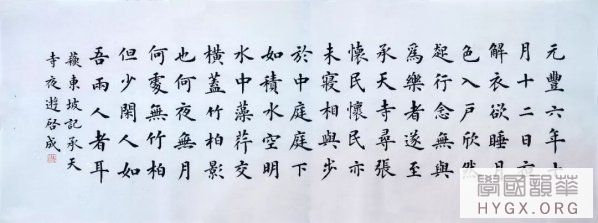 元豐六年十
月十二日夜
解衣欲睡月
色入戶欣然
起行念無與
爲樂者遂至
承天寺尋張
懷民懷民亦
未寢相與步
於中庭庭下
如積水空明
水中藻荇交
橫蓋竹柏影
也何夜無月
何處無竹柏
但少閑人如
吾兩人者耳
蘇東坡記承天
寺夜遊啓成
學國韻華
HYGX.ORG